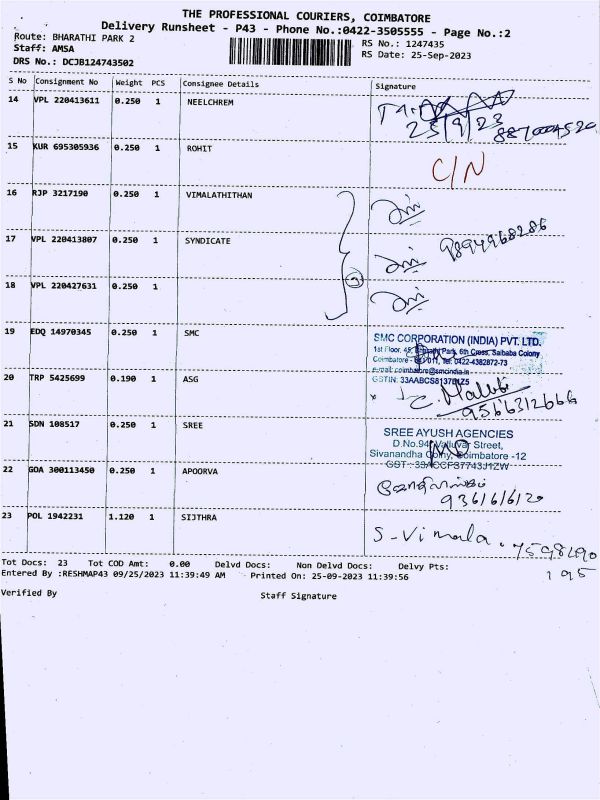 THE PROFESSIONAL COURIERS, COIMBATORE
Delivery Runsheet - P43 - Phone No.:0422-3505555 - Page No.:2
Route: BHARATHI PARK 2
RS No.: 1247435
Staff: AMSA
RS Date: 25-Sep-2023
DRS No.: DCJB124743502
S No Consignment No Weight PCS Consignee Details Signature
14 VPL 220413611 0.250 1 NEELCHREM
25/9/23
15 KUR 695305936 0.250 1 ROHIT C/N
16 RJP 3217190 0.250 1 VIMALATHITHAN
17 VPL 220413807 0.250 1 SYNDICATE 9894968286
18 VPL 220427631 0.250 1
3
19 EDQ 14970345 0.250 1 SMC
SMC CORPORATION (INDIA) PVT. LTD.
1st Floor, 45, Bharathi Park, 6th Cross, Saibaba Colony
Coimbatore - 011, Tel: 0422-4382872-73
e-mail: coimbatore@smcindia.in
GSTIN: 33AABCS8137B1Z5
20 TRP 5425699 0.190 1 ASG
9566312666
21 SDN 108517 0.250 1 SREE
SREE AYUSH AGENCIES
D.No.94, Valluvar Street,
Sivanandha Colony, Coimbatore -12
22 GOA 300113450 0.250 1 APOORVA
23 POL 1942231 1.120 1 SIJTHRA S-Vimala. 7598290
195
Tot Docs: 23 Tot COD Amt: 0.00 Delvd Docs: Non Delvd Docs: Delvy Pts:
Entered By :RESHMAP43 09/25/2023 11:39:49 AM Printed On: 25-09-2023 11:39:56
Verified By Staff Signature